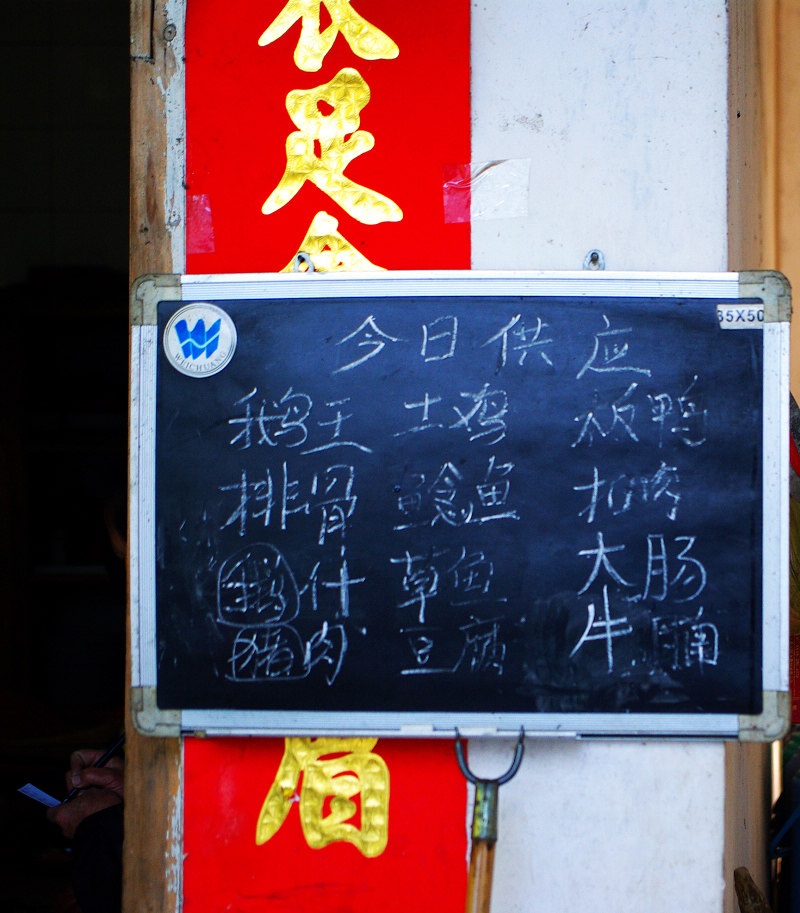 衣足
今日供应
鹅王 土鸡 板鸭
排骨 鲶鱼 扣肉
鹅什 草鱼 大肠
猪肉 豆腐 牛腩
眉
WEICHUANG
35X50